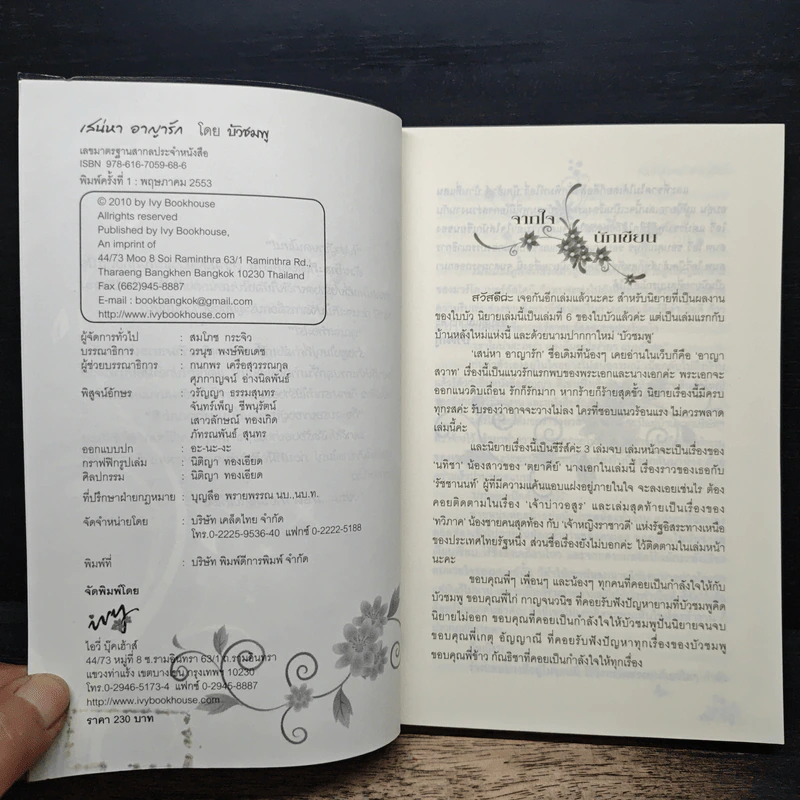 เสน่หา อาญารัก โดย บัวชมพู
เลขมาตรฐานสากลประจำหนังสือ
ISBN 978-616-7059-68-6
พิมพ์ครั้งที่ 1 : พฤษภาคม 2553
© 2010 by Ivy Bookhouse
Allrights reserved
Published by Ivy Bookhouse,
An imprint of
44/73 Moo 8 Soi Raminthra 63/1 Raminthra Rd.,
Tharaeng Bangkhen Bangkok 10230 Thailand
Fax (662)945-8887
E-mail : bookbangkok@gmail.com
http://www.ivybookhouse.com
ผู้จัดการทั่วไป : สมโภช กระจิว
บรรณาธิการ : วรนุช พงษ์พิยเดช
ผู้ช่วยบรรณาธิการ : กนกพร เครือสุวรรณกุล
ศุภกาญจน์ อ่างนิลพันธ์
พิสูจน์อักษร : วรัญญา ธรรมสุนทร
จันทร์เพ็ญ ชีพนุรัตน์
เสาวลักษณ์ ทองเกิด
ภัทรณพันธ์ สุนทร
ออกแบบปก : อะ-นะ-งะ
กราฟฟิกรูปเล่ม : นิติญา ทองเอียด
ศิลปกรรม : นิติญา ทองเอียด
ที่ปรึกษาฝ่ายกฎหมาย : บุญลือ พรายพรรณ นบ.,นบ.ท.
จัดจำหน่ายโดย : บริษัท เคล็ดไทย จำกัด
โทร.0-2225-9536-40 แฟกซ์ 0-2222-5188
พิมพ์ที่ : บริษัท พิมพ์ดีการพิมพ์ จำกัด
จัดพิมพ์โดย
ivy
ไอวี่ บุ๊คเฮ้าส์
44/73 หมู่ที่ 8 ซ.รามอินทรา 63/1 ถ.รามอินทรา
แขวงท่าแร้ง เขตบางเขน กรุงเทพฯ 10230
โทร.0-2946-5173-4 แฟกซ์ 0-2945-8887
http://www.ivybookhouse.com
ราคา 230 บาท
จากใจ
นักเขียน
สวัสดีค่ะ เจอกันอีกเล่มแล้วนะคะ สำหรับนิยายที่เป็นผลงาน
ของใบบัว นิยายเล่มนี้เป็นเล่มที่ 6 ของใบบัวแล้วค่ะ แต่เป็นเล่มแรกกับ
บ้านหลังใหม่แห่งนี้ และด้วยนามปากกาใหม่ 'บัวชมพู'
'เสน่หา อาญารัก' ชื่อเดิมที่น้องๆ เคยอ่านในเว็บก็คือ 'อาญา
สวาท' เรื่องนี้เป็นแนวรักแรกพบของพระเอกและนางเอกค่ะ พระเอกจะ
ออกแนวดิบเถื่อน รักก็รักมาก หากร้ายก็ร้ายสุดขั้ว นิยายเรื่องนี้มีครบ
ทุกรสค่ะ รับรองว่าอาจจะวางไม่ลง ใครที่ชอบแนวร้อนแรง ไม่ควรพลาด
เล่มนี้ค่ะ
และนิยายเรื่องนี้เป็นซีรีส์ค่ะ 3 เล่มจบ เล่มหน้าจะเป็นเรื่องของ
'นทิชา' น้องสาวของ 'ตุยาคีย์' นางเอกในเล่มนี้ เรื่องราวของเธอกับ
'รัชชานนท์' ผู้ที่มีความแค้นแอบแฝงอยู่ภายในใจ จะลงเอยเช่นไร ต้อง
คอยติดตามในเรื่อง 'เจ้าบ่าวอสูร' และเล่มสุดท้ายเป็นเรื่องของ
'ทวิภาค' น้องชายคนสุดท้อง กับ 'เจ้าหญิงราชาวดี' แห่งรัฐอิสระทางเหนือ
ของประเทศไทยรัฐหนึ่ง ส่วนชื่อเรื่องยังไม่บอกค่ะ ไว้ติดตามในเล่มหน้า
นะคะ
ขอบคุณพี่ๆ เพื่อนๆ และน้องๆ ทุกคนที่คอยเป็นกำลังใจให้กับ
บัวชมพู ขอบคุณพี่ไก่ กาญจนวนิช ที่คอยรับฟังปัญหายามที่บัวชมพูคิด
นิยายไม่ออก ขอบคุณที่คอยเป็นกำลังใจให้บัวชมพูปั่นนิยายจนจบ
ขอบคุณพี่เกตุ อัญญาณี ที่คอยรับฟังปัญหาทุกเรื่องของบัวชมพู
ขอบคุณพี่ข้าว กัณธิชาที่คอยเป็นกำลังใจให้ทุกเรื่อง